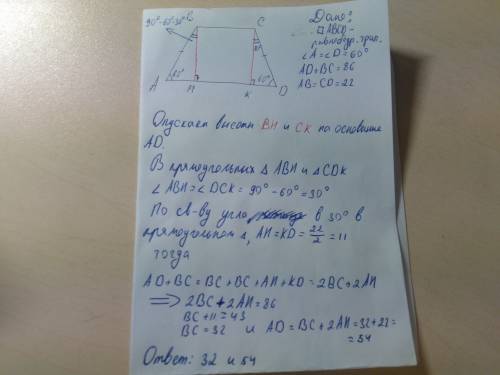 90°-60°=30° B C
A 60° H K 60° D
30°
Дано:
ABCD -
равнобедр. трап.
∠A=∠D=60°
AD+BC=86
AB=CD=22
Опускаем высоты BH и CK на основание
AD.
В прямоугольных △ ABH и △ CDK
∠ABH=∠DCK = 90°-60°=30°
По св-ву угла в 30° в
прямоугольном △, AH=KD= 22/2 = 11
тогда
AD+BC = BC+BC+AH+KD = 2BC+2AH
⟹ 2BC+2AH=86
BC+11=43
BC=32 и AD=BC+2AH=32+22=
=54
Ответ: 32 и 54